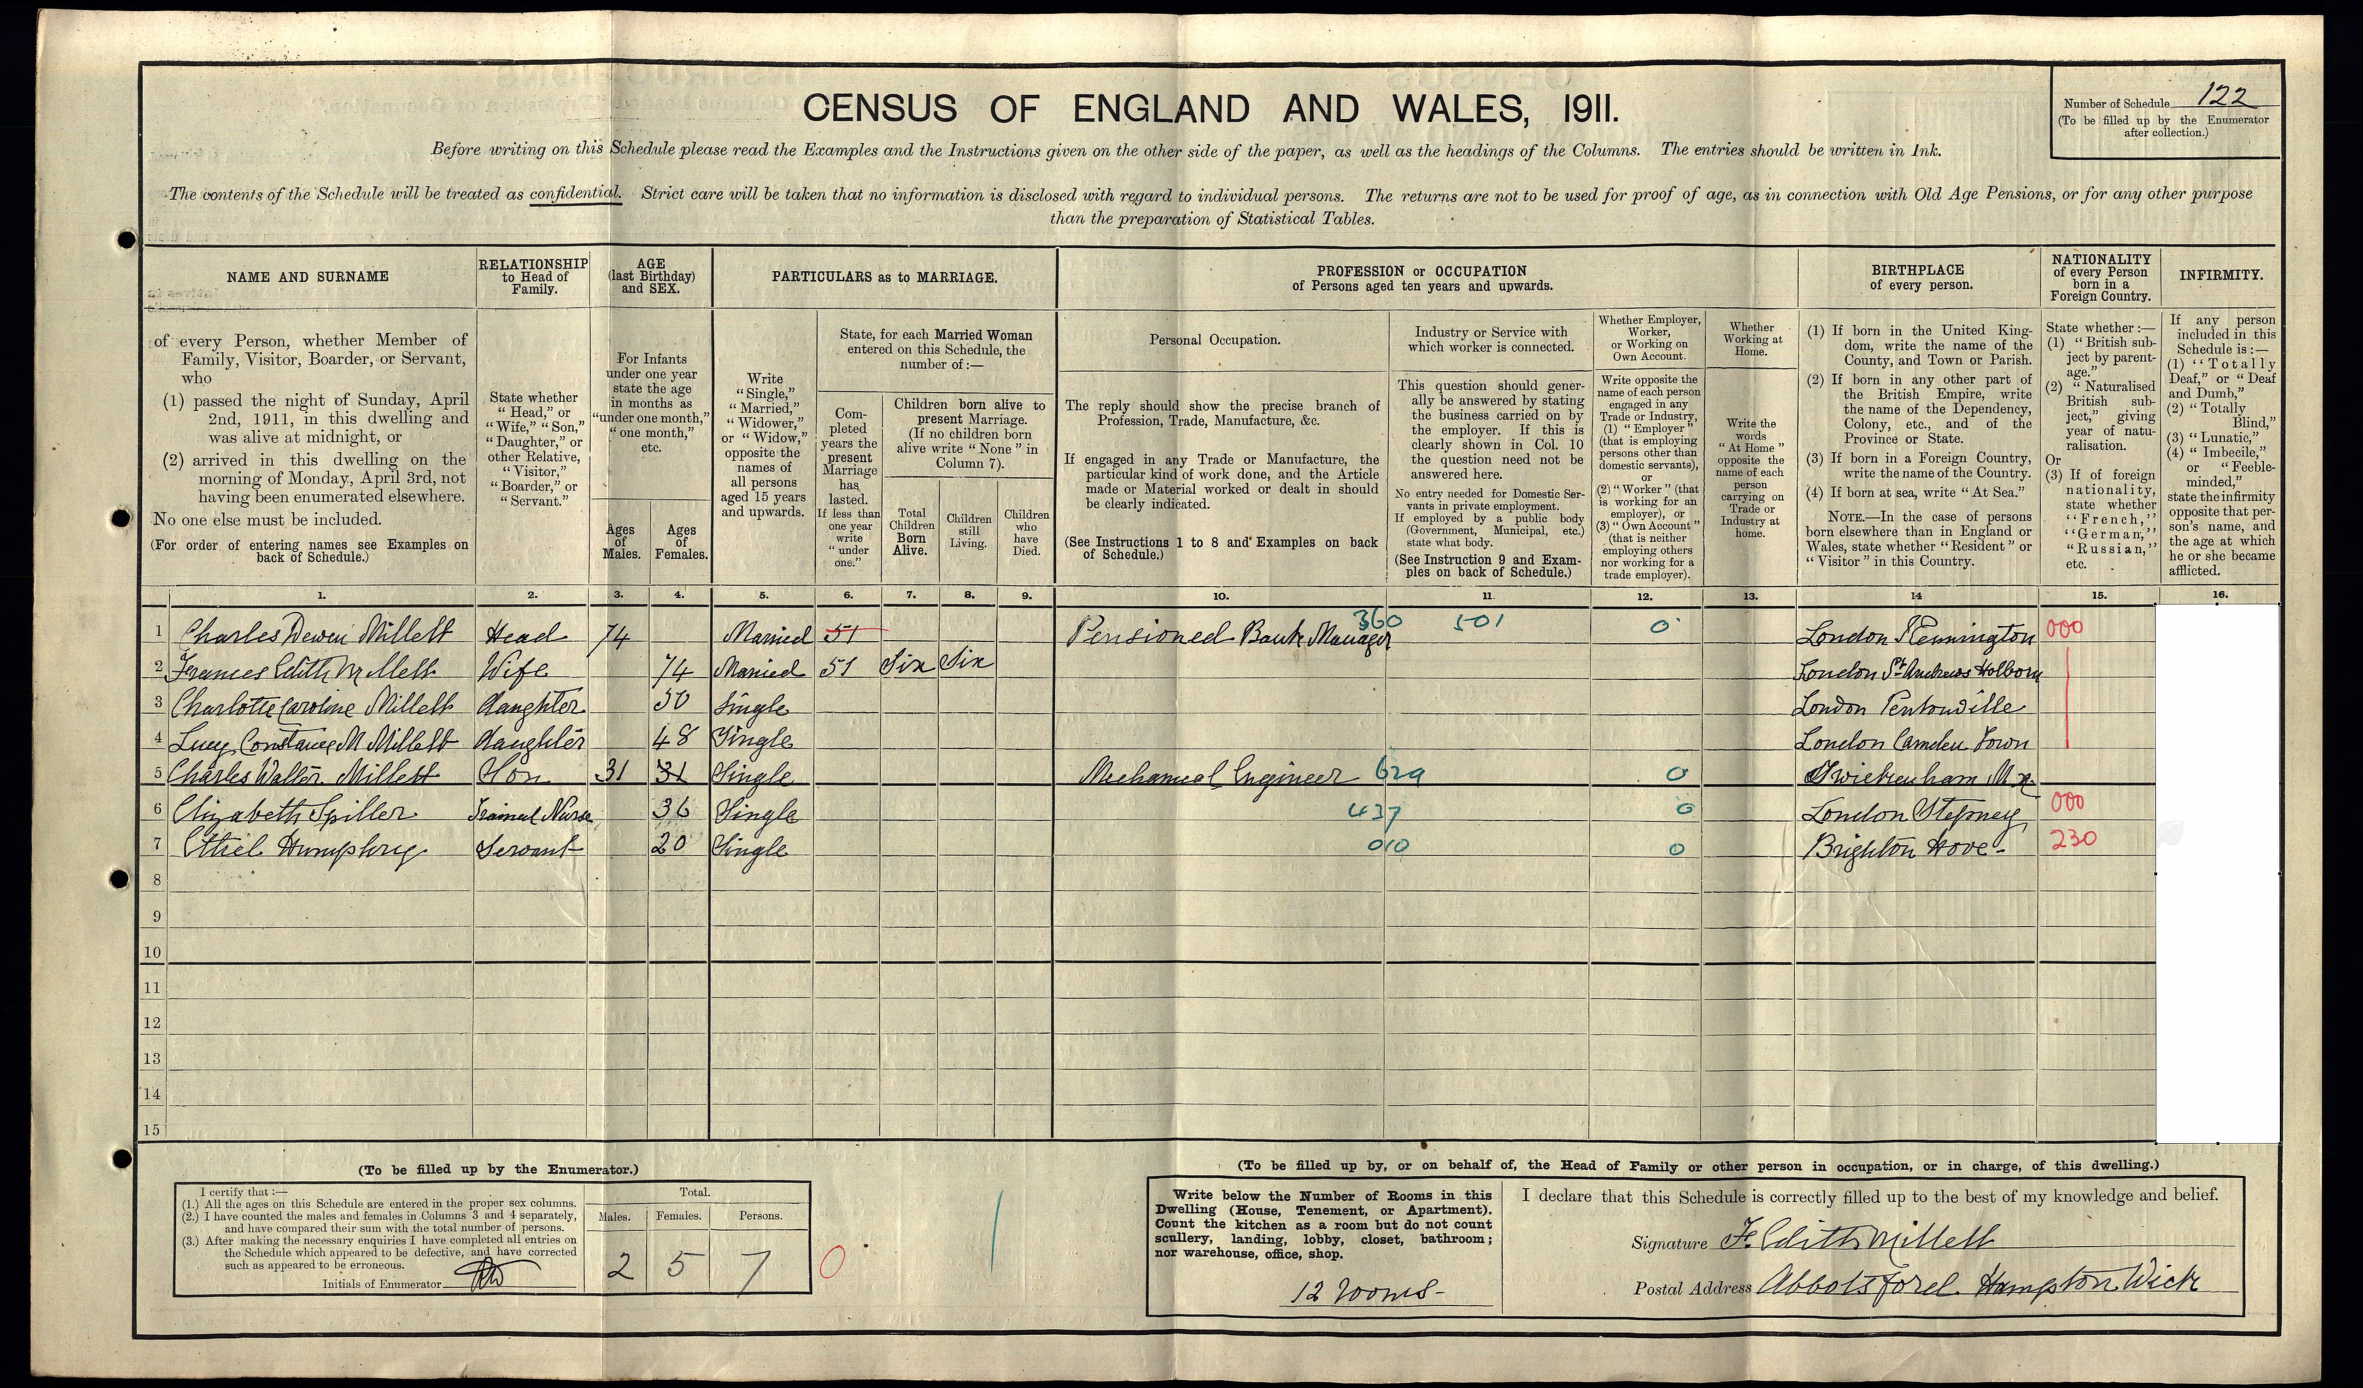 CENSUS OF ENGLAND AND WALES, 1911.
Number of Schedule 122
(To be filled up by the Enumerator
after collection.)
Before writing on this Schedule please read the Examples and the Instructions given on the other side of the paper, as well as the headings of the Columns. The entries should be written in Ink.
The contents of the Schedule will be treated as confidential. Strict care will be taken that no information is disclosed with regard to individual persons. The returns are not to be used for proof of age, as in connection with Old Age Pensions, or for any other purpose
than the preparation of Statistical Tables.
NAME AND SURNAME
of every Person, whether Member of
Family, Visitor, Boarder, or Servant,
who
(1) passed the night of Sunday, April
2nd, 1911, in this dwelling and
was alive at midnight, or
(2) arrived in this dwelling on the
morning of Monday, April 3rd, not
having been enumerated elsewhere.
No one else must be included.
(For order of entering names see Examples on
back of Schedule.)
RELATIONSHIP
to Head of
Family.
State whether
"Head," or
"Wife," "Son,"
"Daughter," or
other Relative,
"Visitor,"
"Boarder," or
"Servant."
AGE
(last Birthday)
and SEX.
For Infants
under one year
state the age
in months as
"under one month,"
"one month,"
etc.
Ages
of
Males.
Ages
of
Females.
PARTICULARS as to MARRIAGE.
Write
"Single,"
"Married,"
"Widower,"
or "Widow,"
opposite the
names of
all persons
aged 15 years
and upwards.
State, for each Married Woman
entered on this Schedule, the
number of:—
Com-
pleted
years the
present
Marriage
has
lasted.
If less than
one year
write
"under
one."
Children born alive to
present Marriage.
(If no children born
alive write "None" in
Column 7).
Total
Children
Born
Alive.
Children
still
Living.
Children
who
have
Died.
PROFESSION or OCCUPATION
of Persons aged ten years and upwards.
Personal Occupation.
The reply should show the precise branch of
Profession, Trade, Manufacture, &c.
If engaged in any Trade or Manufacture, the
particular kind of work done, and the Article
made or Material worked or dealt in should
be clearly indicated.
(See Instructions 1 to 8 and Examples on back
of Schedule.)
Industry or Service with
which worker is connected.
This question should gener-
ally be answered by stating
the business carried on by
the employer. If this is
clearly shown in Col. 10
the question need not be
answered here.
No entry needed for Domestic Ser-
vants in private employment.
If employed by a public body
(Government, Municipal, etc.)
state what body.
(See Instruction 9 and Exam-
ples on back of Schedule.)
Whether Employer,
Worker,
or Working on
Own Account.
Write opposite the
name of each person
engaged in any
Trade or Industry,
(1) "Employer"
(that is employing
persons other than
domestic servants),
or
(2) "Worker" (that
is working for an
employer), or
(3) "Own Account"
(that is neither
employing others
nor working for a
trade employer).
Whether
Working at
Home.
Write the
words
"At Home"
opposite the
name of each
person
carrying on
Trade or
Industry at
home.
BIRTHPLACE
of every person.
(1) If born in the United King-
dom, write the name of the
County, and Town or Parish.
(2) If born in any other part of
the British Empire, write
the name of the Dependency,
Colony, etc., and of the
Province or State.
(3) If born in a Foreign Country,
write the name of the Country.
(4) If born at sea, write "At Sea."
NOTE.—In the case of persons
born elsewhere than in England or
Wales, state whether "Resident" or
"Visitor" in this Country.
NATIONALITY
of every Person
born in a
Foreign Country.
State whether:—
(1) "British sub-
ject by parent-
age."
(2) "Naturalised
British sub-
ject," giving
year of natu-
ralisation.
Or
(3) If of foreign
nationality,
state whether
"French,"
"German,"
"Russian,"
etc.
INFIRMITY.
If any person
included in this
Schedule is:—
(1) "Totally
Deaf," or "Deaf
and Dumb,"
(2) "Totally
Blind,"
(3) "Lunatic,"
(4) "Imbecile,"
or "Feeble-
minded,"
state the infirmity
opposite that per-
son's name, and
the age at which
he or she became
afflicted.
1. 2. 3. 4. 5. 6. 7. 8. 9. 10. 11 12. 13. 14 15. 16.
1 Charles Millett Head 74 Married 51 Pensioned Bank Manager 360 501 0 London Kennington 000
2 Frances Edith Millett Wife 74 Married 51 Six Six London St Andrews Holborn
3 Charlotte Caroline Millett daughter 50 Single London Pentonville
4 Lucy Constance M Millett daughter 48 Single London Camden Town
5 Charles Walter Millett Son 31 31 Single Mechanical Engineer 629 0 Twickenham Mx
6 Elizabeth Spiller Trained Nurse 36 Single 437 0 London Stepney 000
7 Ethel Humphry Servant 20 Single 010 0 Brighton Hove- 230
8
9
10
11
12
13
14
15
(To be filled up by the Enumerator.)
I certify that:—
(1.) All the ages on this Schedule are entered in the proper sex columns.
(2.) I have counted the males and females in Columns 3 and 4 separately,
and have compared their sum with the total number of persons.
(3.) After making the necessary enquiries I have completed all entries on
the Schedule which appeared to be defective, and have corrected
such as appeared to be erroneous.
Initials of Enumerator
Total.
Males. Females. Persons.
2 5 7 0
(To be filled up by, or on behalf of, the Head of Family or other person in occupation, or in charge, of this dwelling.)
Write below the Number of Rooms in this
Dwelling (House, Tenement, or Apartment).
Count the kitchen as a room but do not count
scullery, landing, lobby, closet, bathroom;
nor warehouse, office, shop.
12 rooms-
I declare that this Schedule is correctly filled up to the best of my knowledge and belief.
Signature F. Edith Millett
Postal Address Abbotsford Hampton Wick